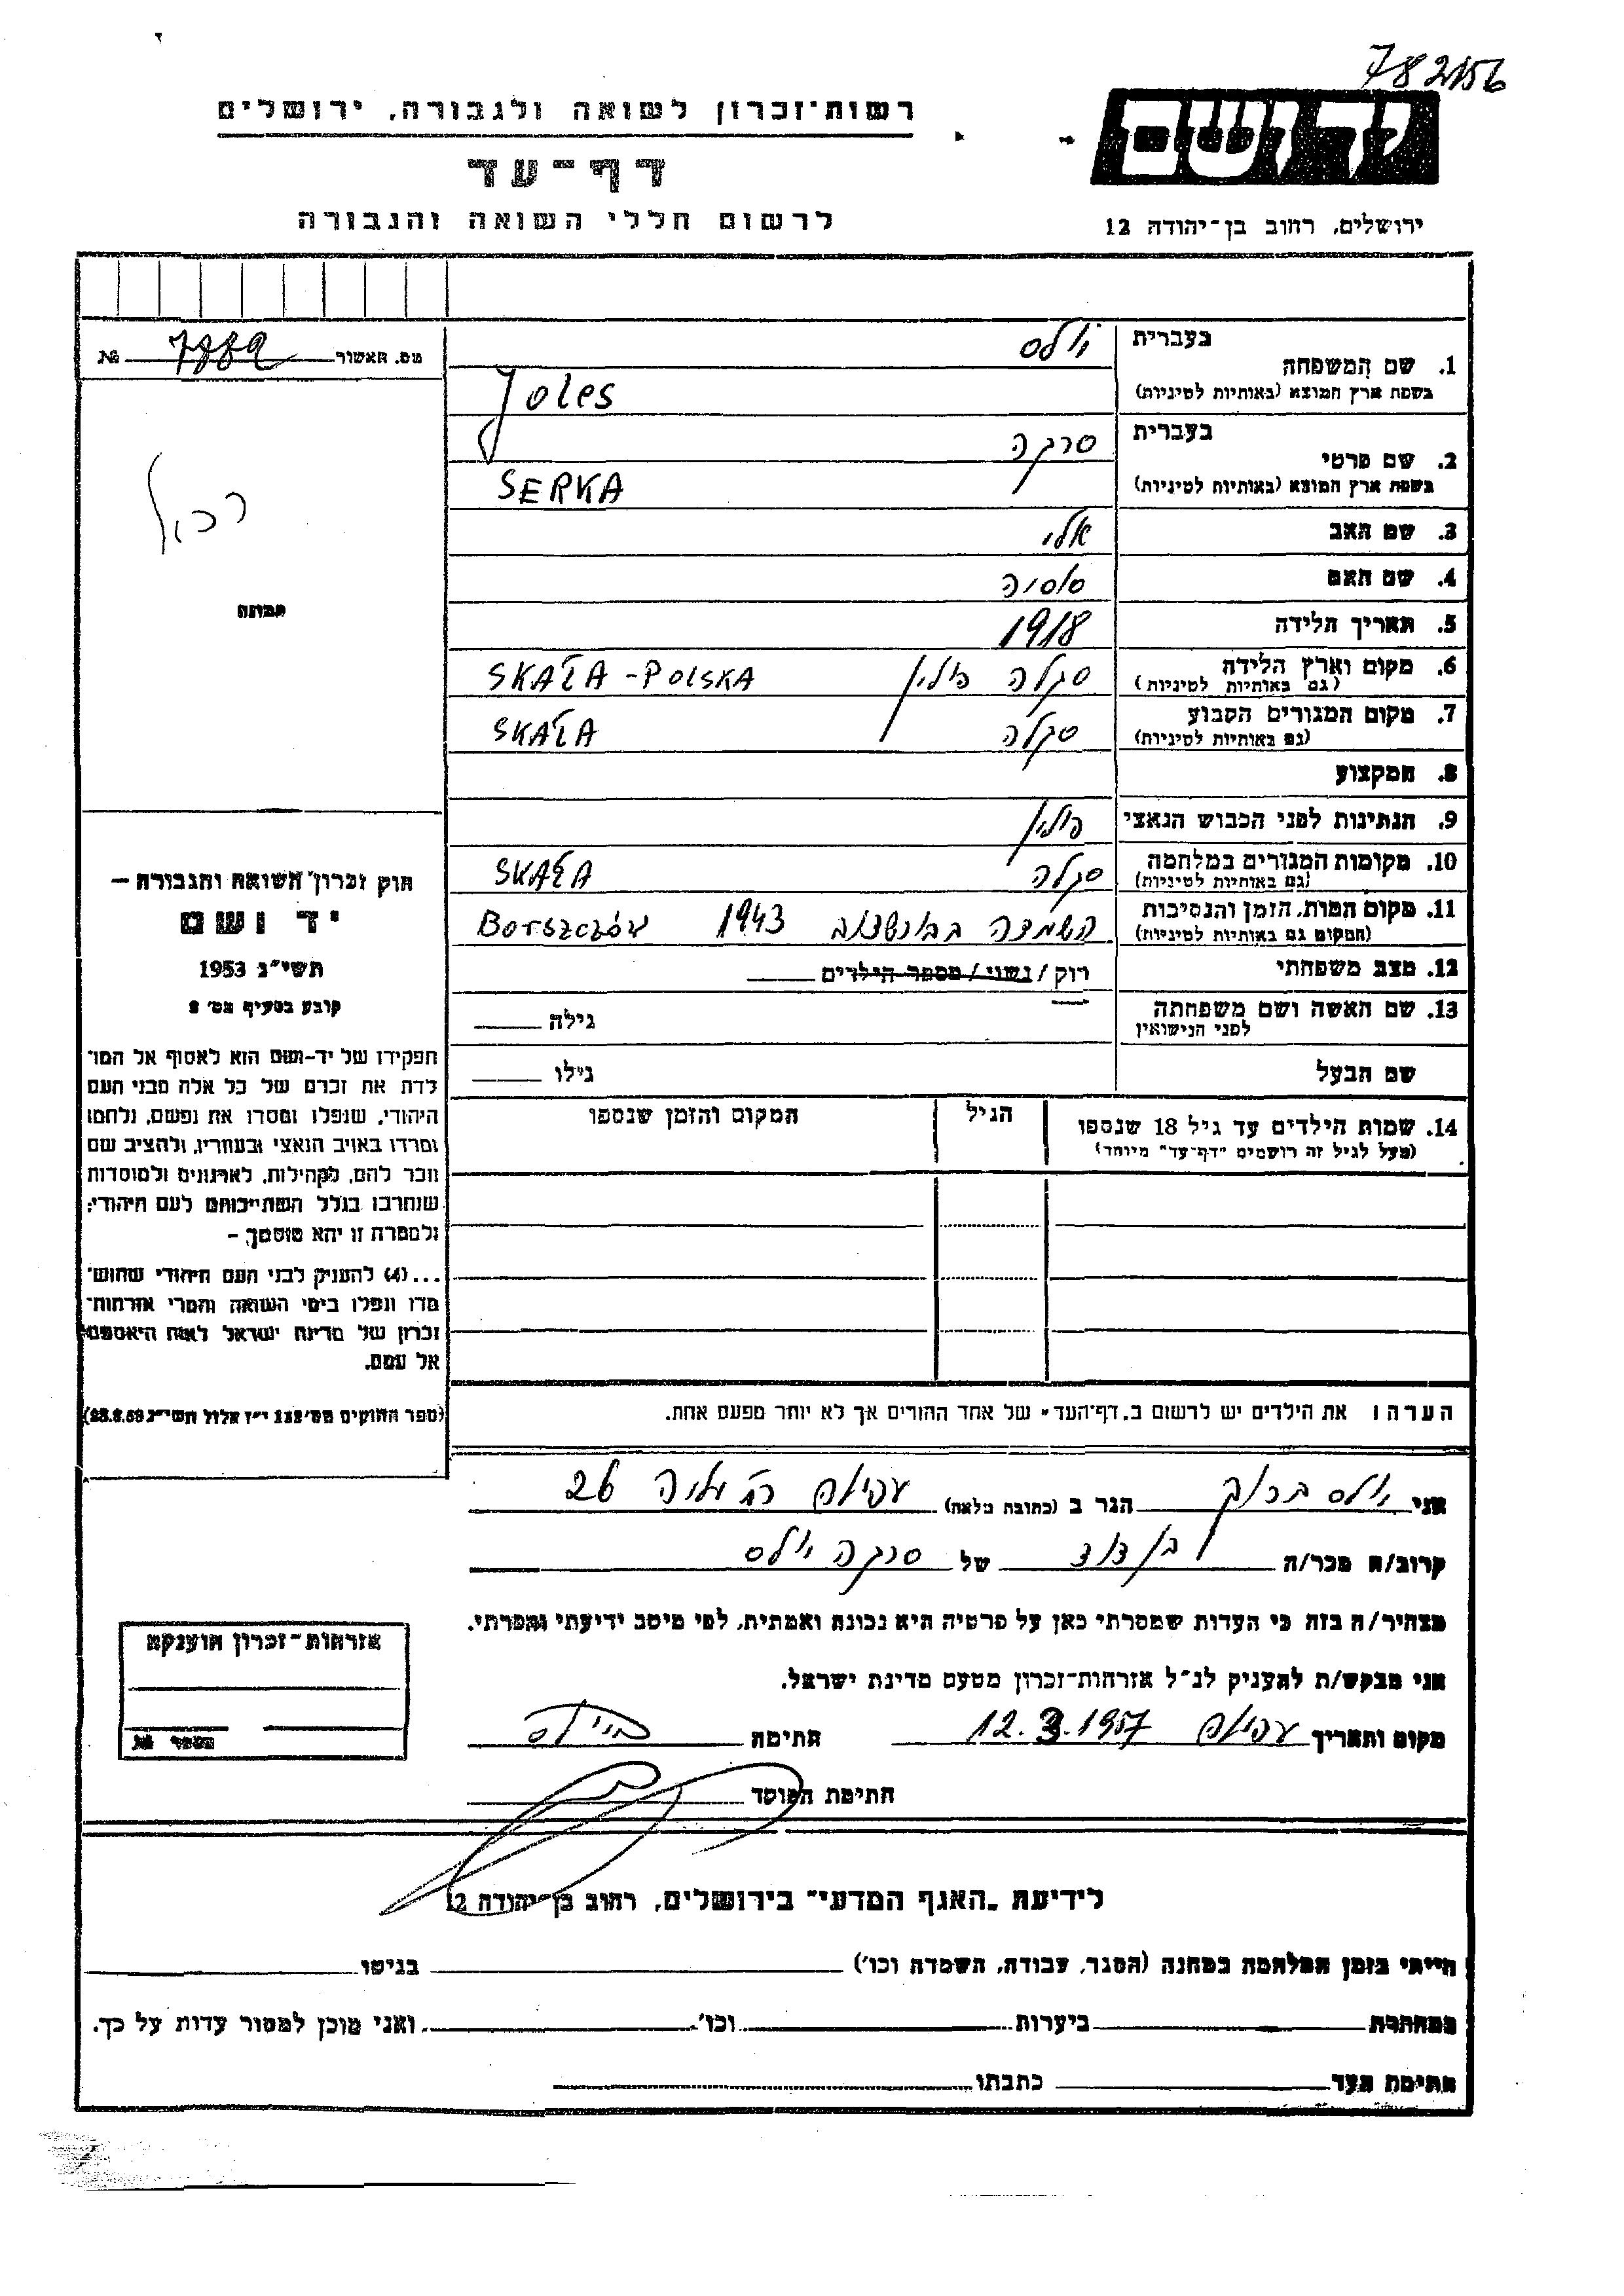 782156
רשות־זכרון לשואה ולגבורה, ירושלים
יד ושם
דף־עד
לרשום חללי השואה והגבורה
ירושלים, רחוב בן־יהודה 12
מס. האשור 7882 №
בעברית יולס
1. שם המשפחה
בשפת ארץ המוצא (באותיות לטיניות) Joles
בעברית סרקה
2. שם פרטי
בשפת ארץ המוצא (באותיות לטיניות) SERKA
3. שם האב אלי
4. שם האם
5. תאריך הלידה 1918
6. מקום וארץ הלידה סקלה פולין SKAŁA - POLSKA
(גם באותיות לטיניות)
7. מקום המגורים הקבוע סקלה SKAŁA
(גם באותיות לטיניות)
8. המקצוע
9. הנתינות לפני הכבוש הנאצי פולין
10. מקומות המגורים במלחמה סקלה SKAŁA
(גם באותיות לטיניות)
11. מקום המות, הזמן והנסיבות השמדה 1943 Borszczów
(המקום גם באותיות לטיניות)
12. מצב משפחתי רוק / נשוי / מספר הילדים
13. שם האשה ושם משפחתה גילה
לפני הנישואין
שם הבעל גילו
14. שמות הילדים עד גיל 18 שנספו הגיל המקום והזמן שנספו
(מעל לגיל זה רושמים "דף־עד" מיוחד)
תמונה
חוק זכרון השואה והגבורה —
יד ושם
תשי"ג 1953
קובע בסעיף מס' 2
תפקידו של יד-ושם הוא לאסוף אל המו־
לדת את זכרם של כל אלה מבני העם
היהודי, שנפלו ומסרו את נפשם, נלחמו
ומרדו באויב הנאצי ובעוזריו, ולהציב שם
וזכר להם, לקהילות, לארגונים ולמוסדות
שנחרבו בגלל השתייכותם לעם היהודי;
ולמטרה זו יהא מוסמך, –
...(4) להעניק לבני העם היהודי שהוש־
מדו ונפלו בימי השואה והמרי אזרחות־
זכרון של מדינת ישראל לאות היאספם
אל עמם.
(ספר החוקים מס' 132 י"ז אלול תשי"ג 28.8.53)
הערה: את הילדים יש לרשום ב"דף־העד" של אחד ההורים אך לא יותר מפעם אחת.
אני יולס ברוך הגר ב (כתובת מלאה) עפולה רח' 26
קרוב/ה מכר/ה בן דוד של סרקה יולס
מצהיר/ה בזה כי העדות שמסרתי כאן על פרטיה היא נכונה ואמתית, לפי מיטב ידיעתי והכרתי.
אני מבקש/ת להעניק לנ"ל אזרחות־זכרון מטעם מדינת ישראל.
מקום ותאריך עפולה 12.3.1957 חתימה ב. יולס
חתימת המוסד
אזרחות־זכרון הוענקה
מספר №
לידיעת "האגף המדעי" בירושלים, רחוב בן־יהודה 12
הייתי בזמן המלחמה במחנה (הסגר, עבודה, השמדה וכו') בגיטו
במחתרת ביערות וכו'. ואני מוכן למסור עדות על כך.
חתימת העד כתבתו